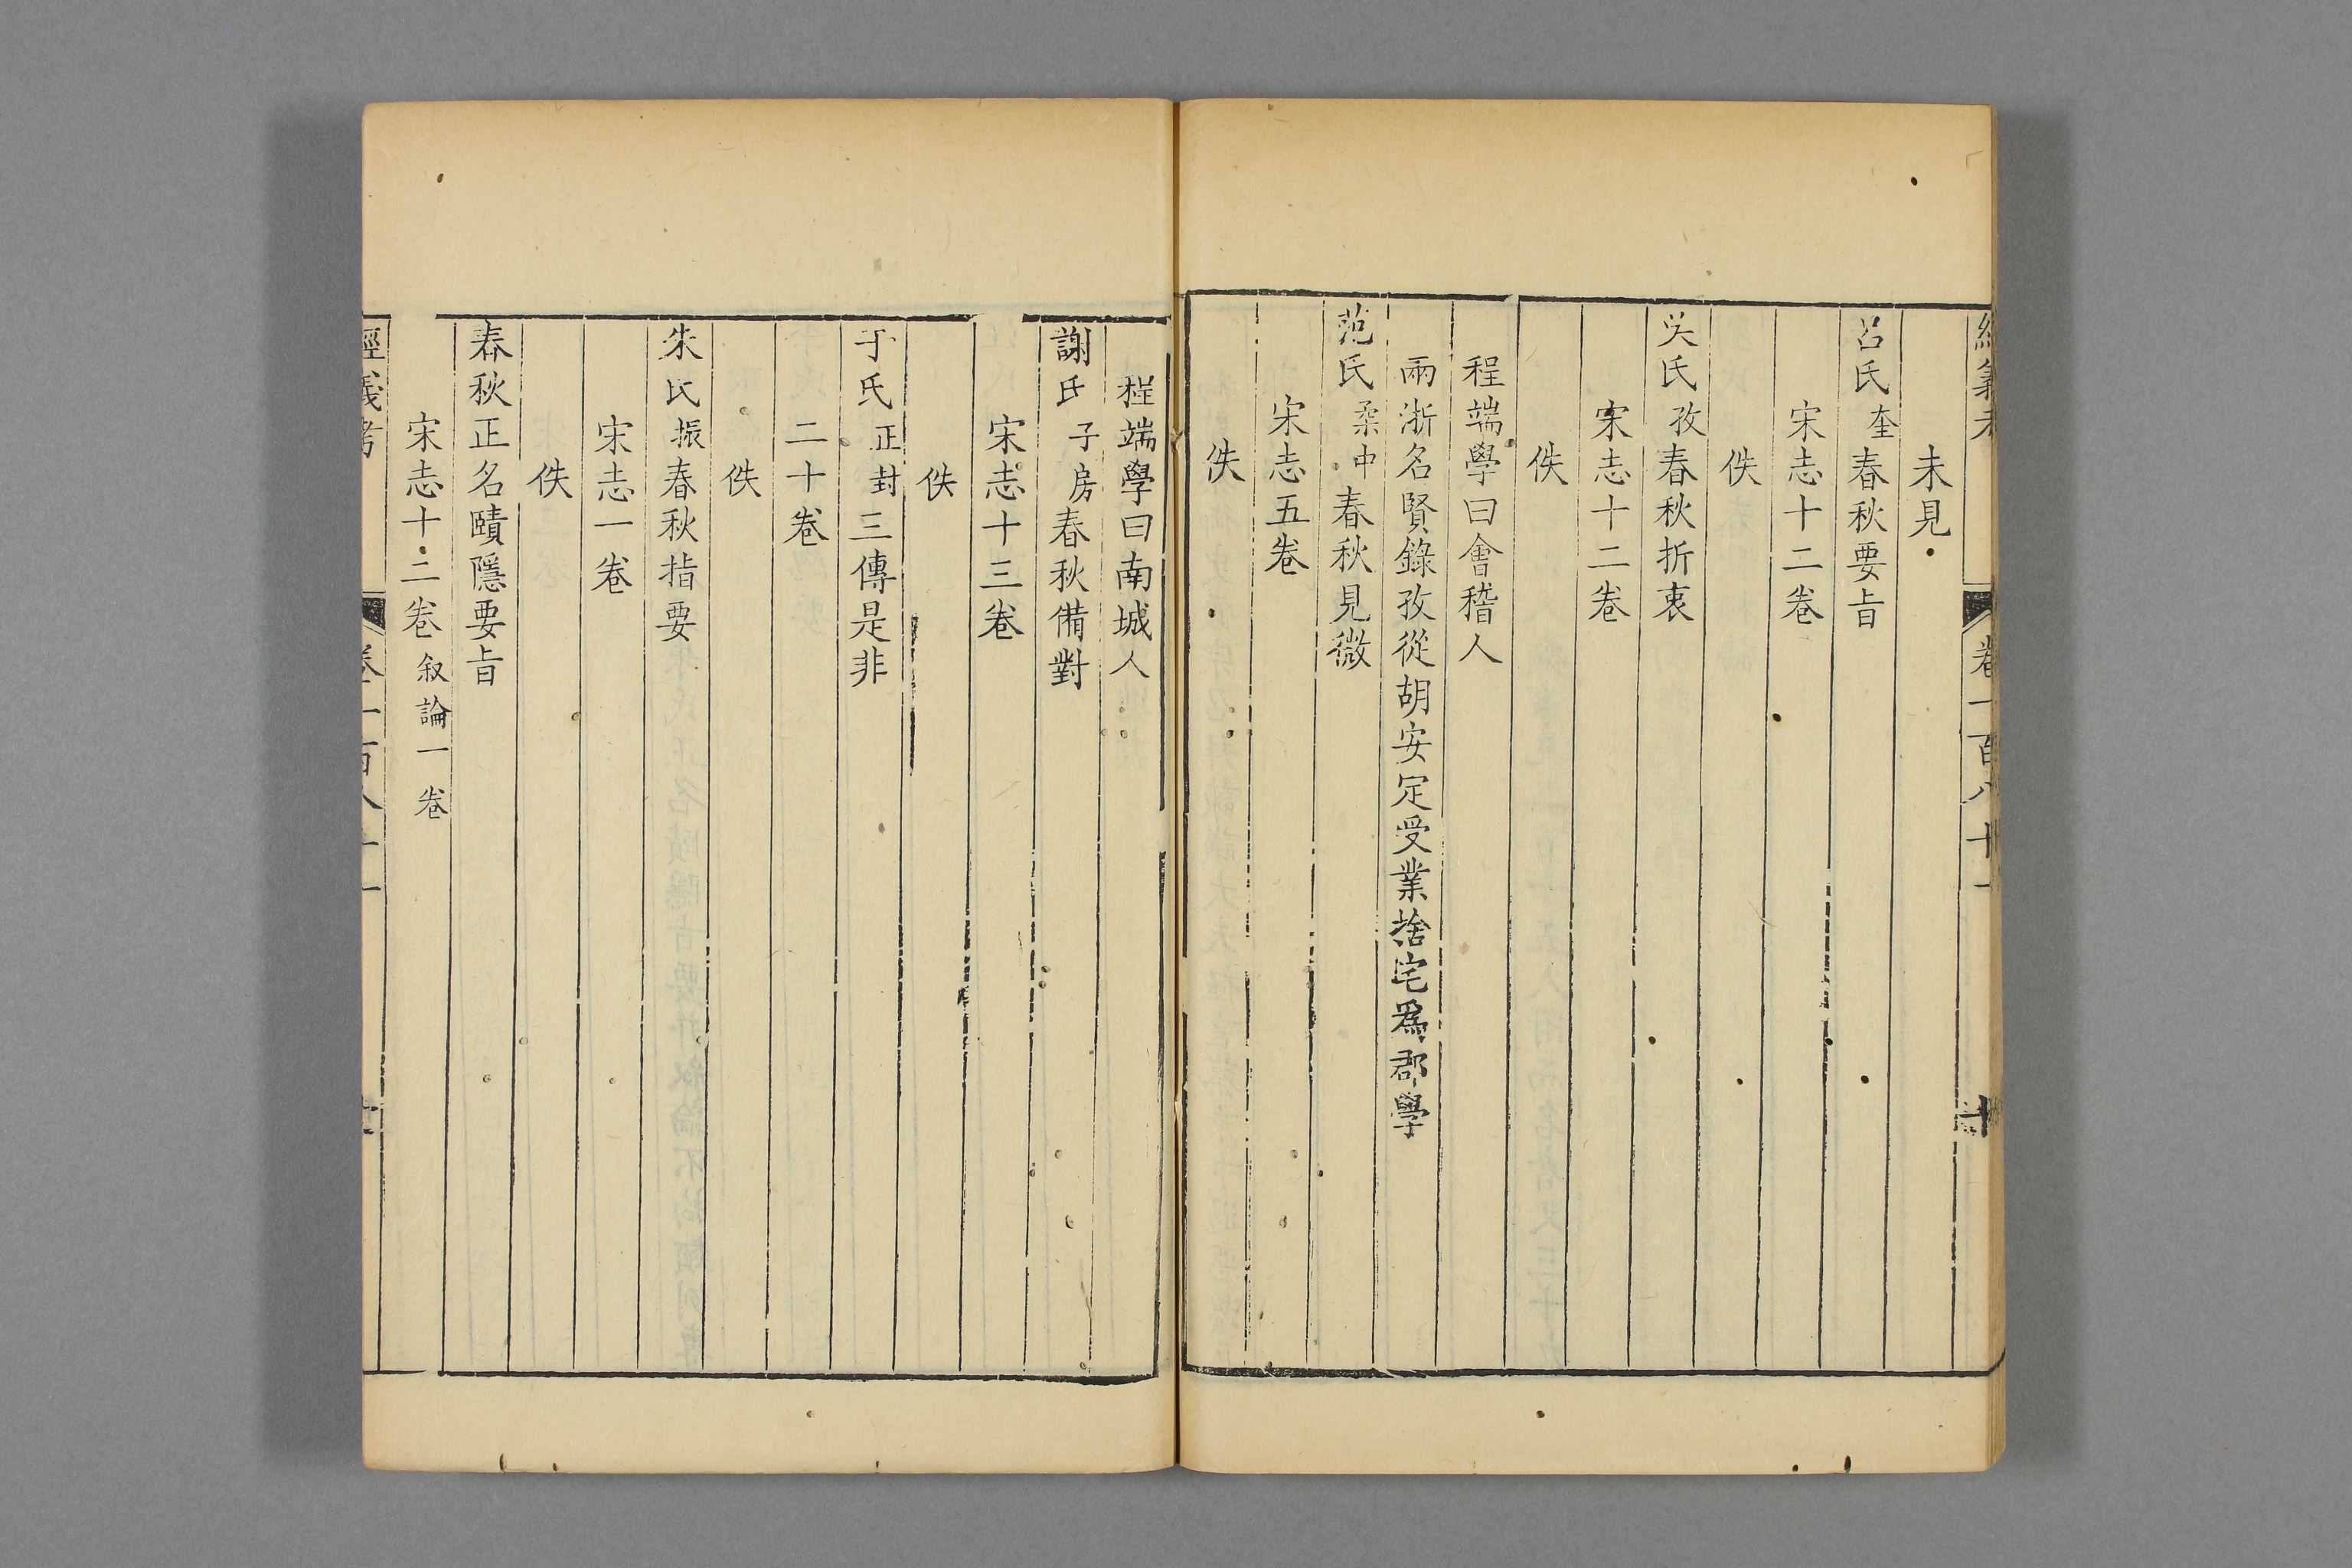 經義考
卷一百八十一
十
未見
呂氏奎春秋要旨
宋志十二卷
佚
吳氏孜春秋折衷
宋志十二卷
佚
程端學曰會稽人
兩浙名賢錄孜從胡安定受業捨宅爲郡學
范氏柔中春秋見微
宋志五卷
佚
程端學曰南城人
謝氏子房春秋備對
宋志十三卷
佚
于氏正封三傳是非
二十卷
佚
朱氏振春秋指要
宋志一卷
佚
春秋正名賾隱要旨
宋志十二卷叙論一卷
經義考
卷一百八十一